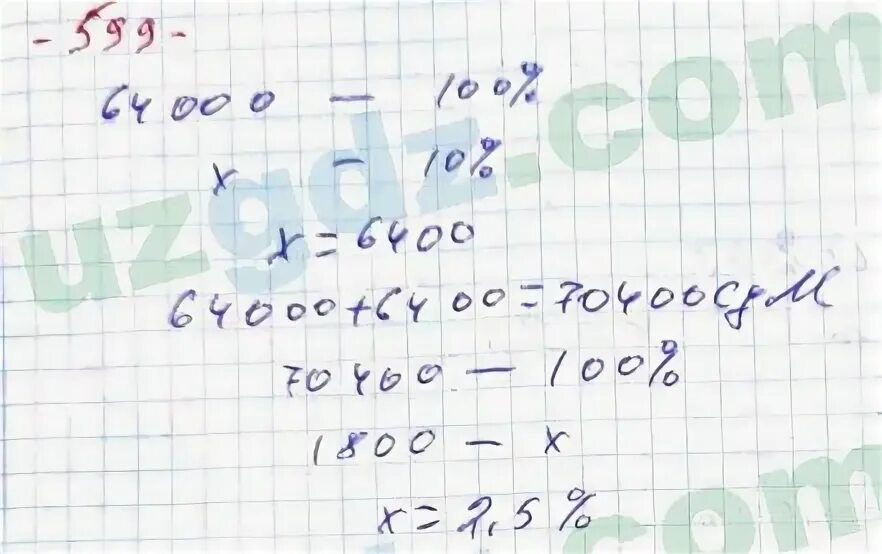 - 599 -
64000 — 100%
x — 10%
x = 6400
64000 + 6400 = 70400 сум
70400 — 100%
1800 — x
x = 2,5%
uzgdz.com